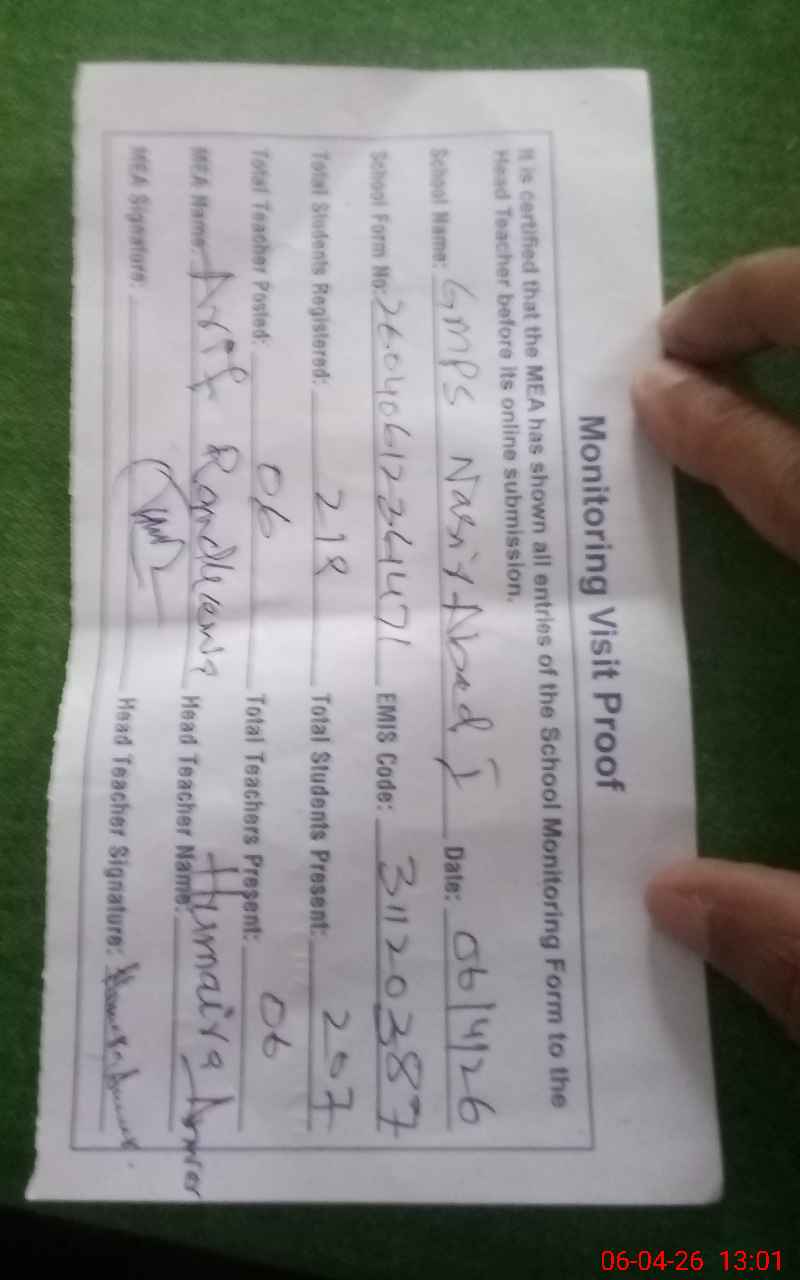 Monitoring Visit Proof
It is certified that the MEA has shown all entries of the School Monitoring Form to the
Head Teacher before its online submission.
School Name: GMPS Nasir Abad I Date: 06/4/26
School Form No: 260406122641471 EMIS Code: 31120387
Total Students Registered: 218 Total Students Present: 207
Total Teacher Posted: 06 Total Teachers Present: 06
MEA Name: Arif Randhawa Head Teacher Name: Humaira Ameer
MEA Signature: Head Teacher Signature:
06-04-26 13:01